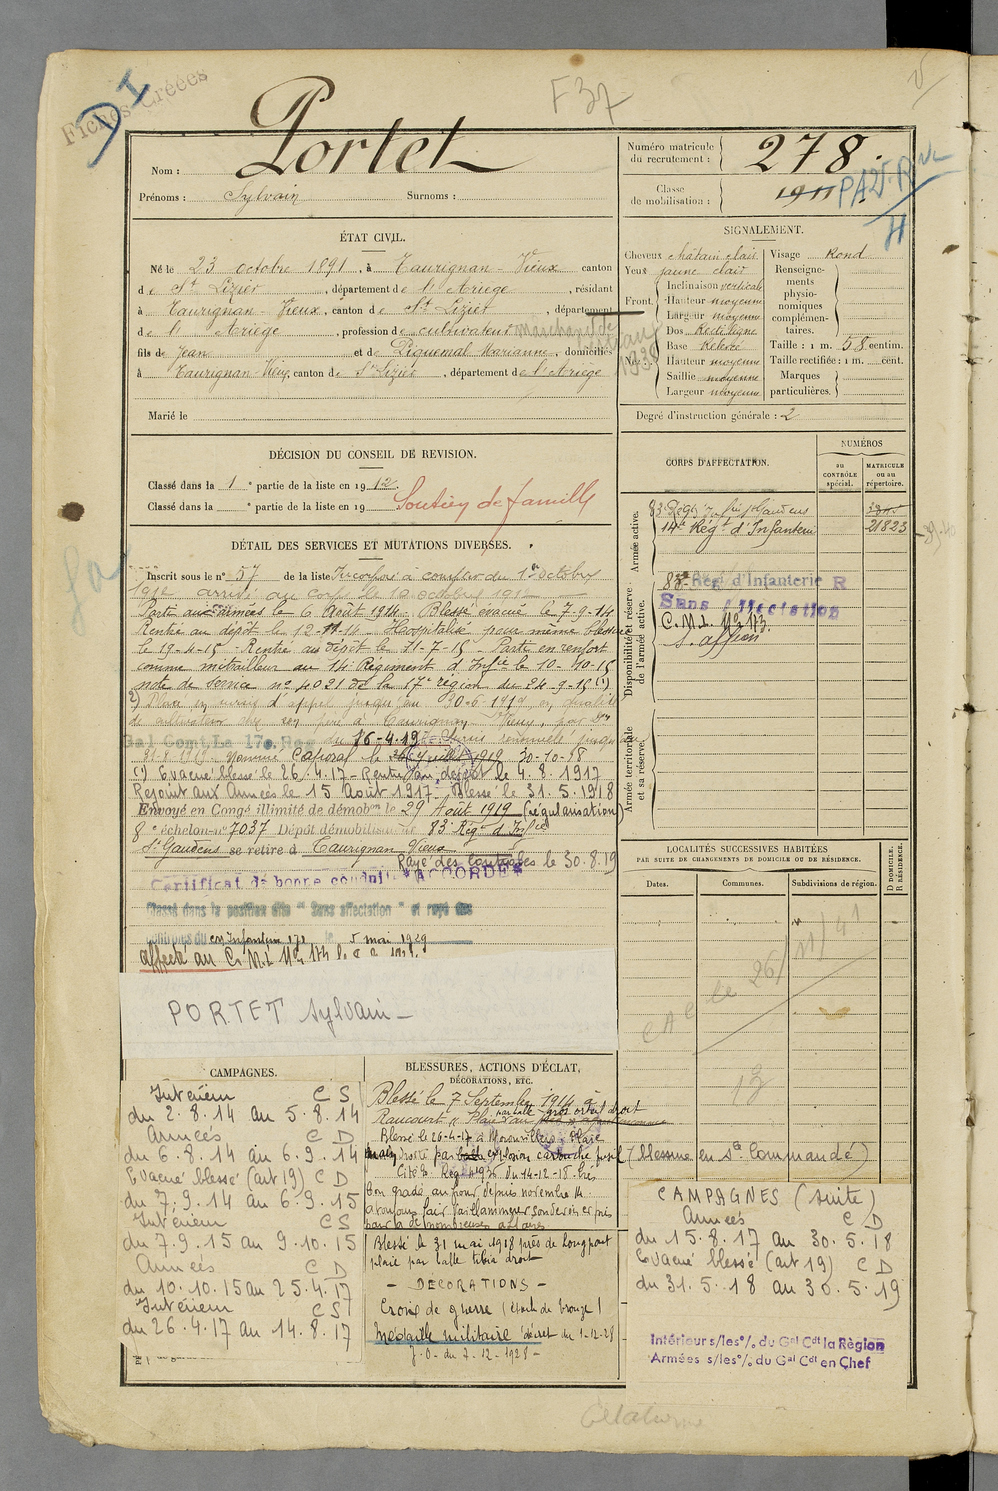 Fiches Créées
DI
F 37
Portet
Nom :
Prénoms : Sylvain Surnoms :
Numéro matricule du recrutement : 278.
Classe de mobilisation : 1911
ÉTAT CIVIL.
Né le 23 octobre 1891, à Taurignan-Vieux canton
de St Lizier, département de l'Ariège, résidant
à Taurignan-Vieux, canton de St Lizier, département
de l'Ariège, profession de cultivateur marchand de
fils de Jean et de Piquemal Marianne, domiciliés
à Taurignan-Vieux, canton de St Lizier, département de l'Ariège
Marié le
SIGNALEMENT.
Cheveux châtain clair Visage Rond
Yeux jaune clair
Front. Inclinaison verticale
Hauteur moyenne
Largeur moyenne
Nez. Dos Rectiligne
Base Relevée
Hauteur moyenne
Saillie moyenne
Largeur moyenne
Renseignements physionomiques complémentaires.
Taille : 1 m. 58 centim.
Taille rectifiée : 1 m. cent.
Marques particulières.
Degré d'instruction générale : 2
DÉCISION DU CONSEIL DE REVISION.
Classé dans la 1e partie de la liste en 1912
Classé dans la e partie de la liste en 19
Soutien de famille
CORPS D'AFFECTATION.
NUMÉROS
au CONTRÔLE spécial.
MATRICULE ou au répertoire.
Armée active.
14e Régt d'Infanterie 21823
Disponibilité et réserve de l'armée active.
83e Régt d'Infanterie R
Sans affectation
C.M.I. No 173
S. affon
Armée territoriale et sa réserve.
DÉTAIL DES SERVICES ET MUTATIONS DIVERSES.
Inscrit sous le no 57 de la liste Incorporé à compter du 1er octobre
1912 arrivé au corps le 10 octobre 1912
Parti aux armées le 6 Août 1914. Blessé évacué le 7-9-14
Rentré au dépôt le 12-11-14 Hospitalisé pour même blessure
le 19-4-15 - Rentré au dépôt le 31-7-15 - Parti en renfort
comme mitrailleur au 14 Régiment d'Infie le 10-10-15
note de service no 4021 de la 17e région du 24-9-15 (1)
2) Placé en sursis d'appel jusqu'au 30-6-1919 en qualité
de cultivateur chez son père à Taurignan Vieux, par Don
Gal Comt La 17e Reg du 16-4-19 Sursis renouvelé jusqu'au
31-8-1919. Nommé Caporal le 30-10-18
(1) Evacué blessé le 26.4.17 - Rentré au dépôt le 4.8.1917
Rejoint aux Armées le 15 Août 1917 - Blessé le 31.5.1918
Envoyé en Congé illimité de démobon le 29 Août 1919 (régularisation)
8e échelon no 7037 Dépôt démobilisateur 83e Régt d'Infie
St Gaudens se retire à Taurignan Vieux
Rayé des contrôles le 30.8.19
Certificat de bonne conduite "ACCORDÉ"
Classé dans la position dite "Sans affectation" et rayé des
contrôles du cm Infanterie 172 le 5 mai 1929
affecté au C.M.I. No 174
PORTET Sylvain
LOCALITÉS SUCCESSIVES HABITÉES
PAR SUITE DE CHANGEMENTS DE DOMICILE OU DE RÉSIDENCE.
Dates. Communes. Subdivisions de région. D DOMICILE. R RÉSIDENCE.
le 26/11/41
CAMPAGNES.
Intérieur C S
du 2.8.14 au 5.8.14
Armées C D
du 6.8.14 au 6.9.14
Evacué blessé (art 19) C D
du 7.9.14 au 6.9.15
Intérieur C S
du 7.9.15 au 9.10.15
Armées C D
du 10.10.15 au 25.4.17
Intérieur C S
du 26.4.17 au 14.8.17
BLESSURES, ACTIONS D'ÉCLAT,
DÉCORATIONS, ETC.
Blessé le 7 Septembre 1914 à
Raucourt par balle gros orteil droit
Blessé le 26-4-17 à Moronvilliers Plaie
main droite par explosion cartouche fusil (blessure en Sce Commandé)
Cité O. Régt no 936 du 14-12-18 très
bon gradé, au front depuis novembre 14.
a toujours fait vaillamment son devoir et pris
part à de nombreuses affaires
Blessé le 31 mai 1918 près de Longpont
plaie par balle tibia droit
- DECORATIONS -
Croix de guerre (étoile de bronze)
Médaille militaire décret du 1-12-28
J.O. du 7-12-1928 -
CAMPAGNES (suite)
Armées C D
du 15.8.17 au 30.5.18
Evacué blessé (art 19) C D
du 31.5.18 au 30.5.19
Intérieur s/les o/. du Gal Cdt la Région
Armées s/les o/. du Gal Cdt en Chef